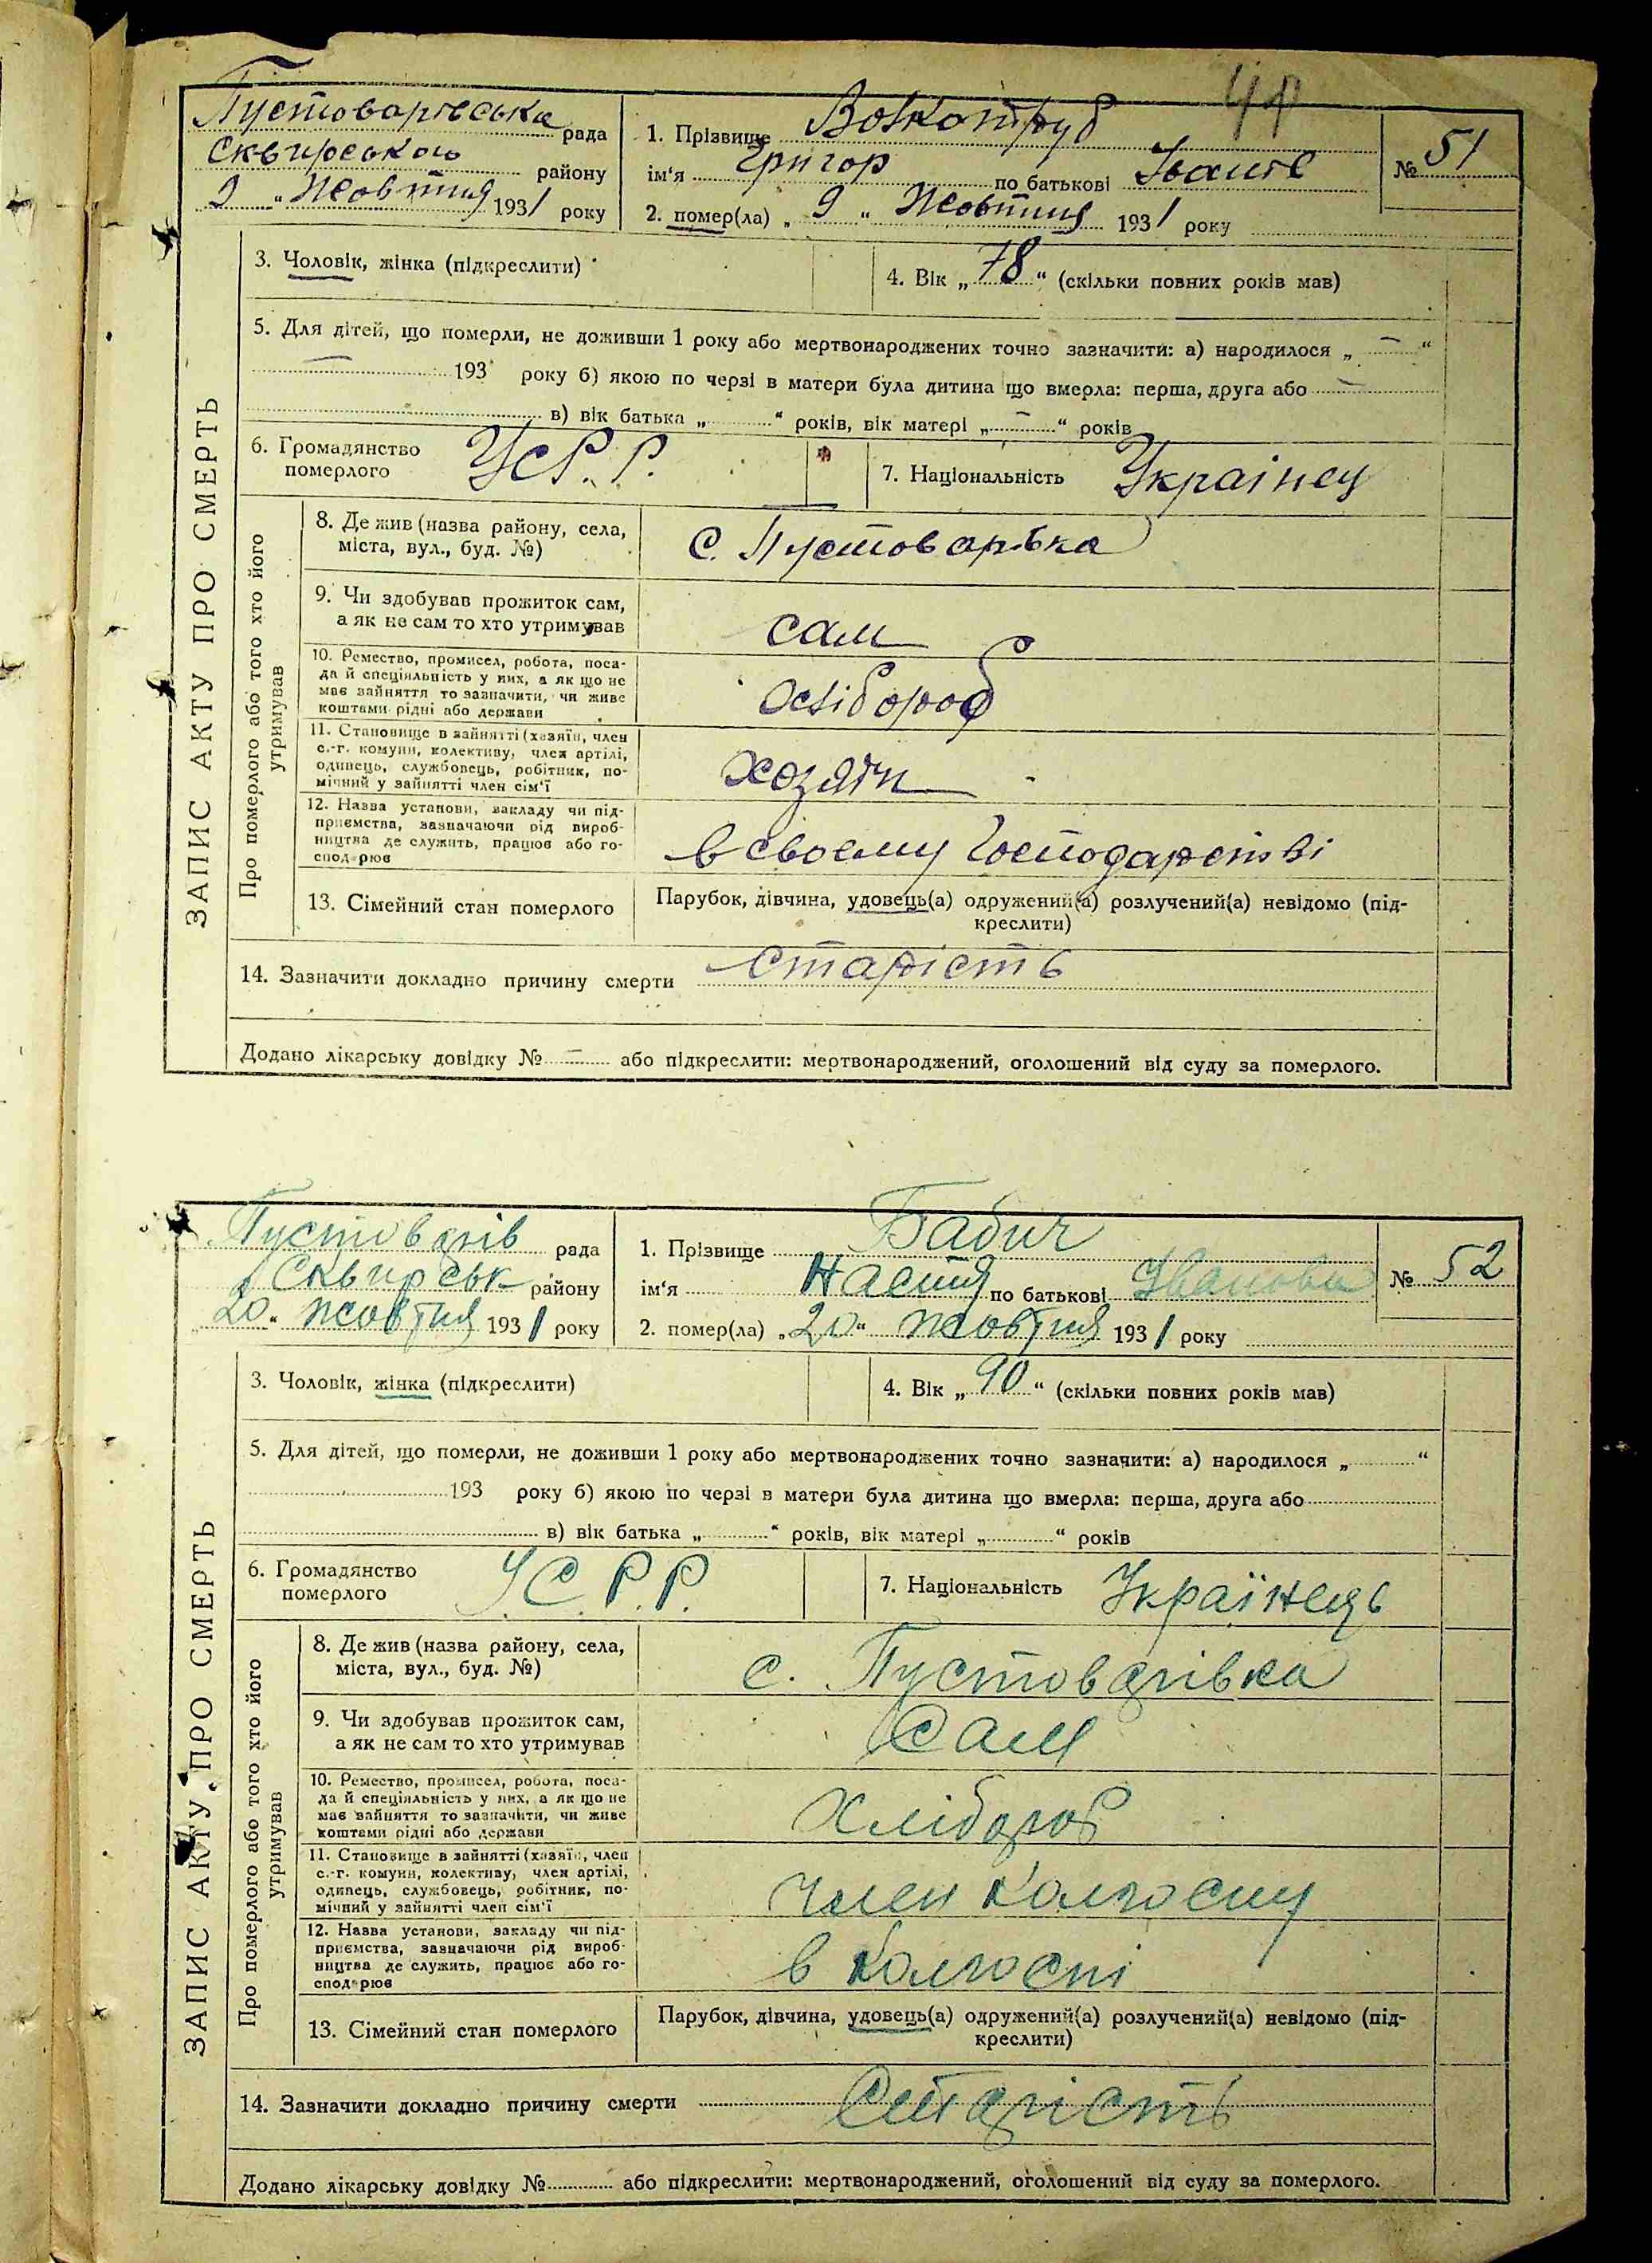 Пустоварівська рада
Сквирського району
9 „ Жовтня 1931 року
1. Прізвище Вовкотруб
ім'я Григор по батькові Іванів
2. помер(ла) „ 9 “ Жовтня 1931 року
№ 51
3. Чоловік, жінка (підкреслити)
4. Вік „ 78 “ (скільки повних років мав)
5. Для дітей, що померли, не доживши 1 року або мертвонароджених точно зазначити: а) народилося „ — “
— 193 року б) якою по черзі в матери була дитина що вмерла: перша, друга або —
в) вік батька „ “ років, вік матері „ — “ років
6. Громадянство
померлого
УСР.Р.
7. Національність Українец
ЗАПИС АКТУ ПРО СМЕРТЬ
Про померлого або того хто його
утримував
8. Де жив (назва району, села,
міста, вул., буд. №)
с. Пустоварівка
9. Чи здобував прожиток сам,
а як не сам то хто утримував
сам
10. Ремество, промисел, робота, поса-
да й спеціяльність у них, а як що не
має зайняття то зазначити, чи живе
коштами рідні або держави
Хлібороб
11. Становище в зайнятті (хазяїн, член
с.-г. комуни, колективу, член артілі,
одинець, службовець, робітник, по-
мічний у зайнятті член сім'ї
хозяїн
12. Назва установи, закладу чи під-
приємства, зазначаючи рід вироб-
ництва де служить, працює або го-
сподарює
в своєму господарстві
13. Сімейний стан померлого
Парубок, дівчина, удовець(а) одружений(а) розлучений(а) невідомо (під-
креслити)
14. Зазначити докладно причину смерти старість
Додано лікарську довідку № — або підкреслити: мертвонароджений, оголошений від суду за померлого.
Пустоварів рада
Сквирськ району
20 „ жовтня 1931 року
1. Прізвище Бабич
ім'я Настя по батькові Іванова
2. помер(ла) „ 20 “ жовтня 1931 року
№ 52
3. Чоловік, жінка (підкреслити)
4. Вік „ 90 “ (скільки повних років мав)
5. Для дітей, що померли, не доживши 1 року або мертвонароджених точно зазначити: а) народилося „ “
193 року б) якою по черзі в матери була дитина що вмерла: перша, друга або
в) вік батька „ “ років, вік матері „ “ років
6. Громадянство
померлого
У.С.Р.Р.
7. Національність Українець
ЗАПИС АКТУ ПРО СМЕРТЬ
Про померлого або того хто його
утримував
8. Де жив (назва району, села,
міста, вул., буд. №)
с. Пустоварівка
9. Чи здобував прожиток сам,
а як не сам то хто утримував
Сам
10. Ремество, промисел, робота, поса-
да й спеціяльність у них, а як що не
має зайняття то зазначити, чи живе
коштами рідні або держави
Хлібороб
11. Становище в зайнятті (хазяїн, член
с.-г. комуни, колективу, член артілі,
одинець, службовець, робітник, по-
мічний у зайнятті член сім'ї
член колгоспу
12. Назва установи, закладу чи під-
приємства, зазначаючи рід вироб-
ництва де служить, працює або го-
сподарює
в колгоспі
13. Сімейний стан померлого
Парубок, дівчина, удовець(а) одружений(а) розлучений(а) невідомо (під-
креслити)
14. Зазначити докладно причину смерти Старість
Додано лікарську довідку № або підкреслити: мертвонароджений, оголошений від суду за померлого.